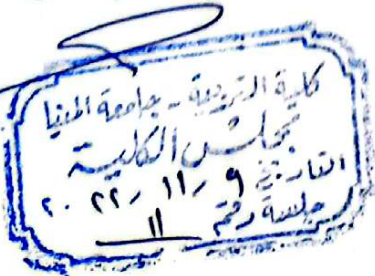 كلية التربية - جامعة المنيا
مجلس الكلية
التاريخ ٩ / ١١ / ٢٠٢٢
جلسة رقم ١١